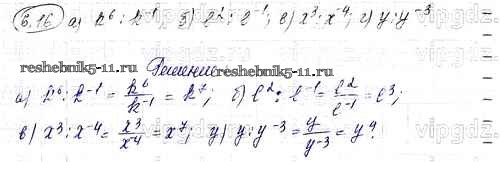 6.16 а) k⁶ : k⁻¹; б) l² : l⁻¹; в) x³ : x⁻⁴; г) y : y⁻³
reshebnik5-11.ru
Решение
reshebnik5-11.ru
а) k⁶ : k⁻¹ = k⁶/k⁻¹ = k⁷; б) l² : l⁻¹ = l²/l⁻¹ = l³;
в) x³ : x⁻⁴ = x³/x⁻⁴ = x⁷; г) y : y⁻³ = y/y⁻³ = y⁴.
vipgdz.com